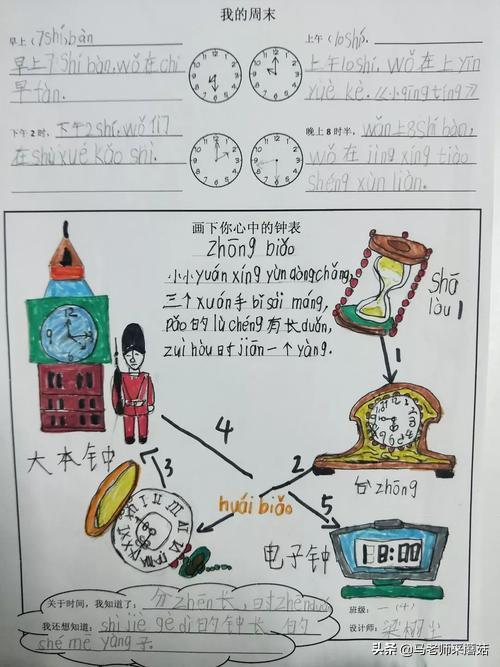 我的周末
早上(7shí)bàn
早上7shí bàn,wǒ在chī
早fàn.
上午10shí.
上午10shí,wǒ在上yīn
yuè kè.《小qīngtíng》
下午2时,下午2shí,wǒ们
在shùxué kǎo shì.
晚上8时半,wǎn上8shí bàn,
wǒ在jìng xíng tiào
shéng xùn liàn.
画下你心中的钟表
zhōng biǎo
小小yuán xíng yùn dòng chǎng,
三个xuǎn手bǐ sài máng,
pǎo的lù chéng有长duǎn,
zuì hòu时jiān一个yàng.
shā
lòu 1
1
大本钟
4
3
2
台zhōng
huái biǎo
5
电子钟
18:00
关于时间,我知道了:分zhēn长,时zhēn
我还想知道:shì jiè gè dì的钟长的
shé me yàng子
班级:一(4)
设计师:梁
头条 @马老师来蘑菇